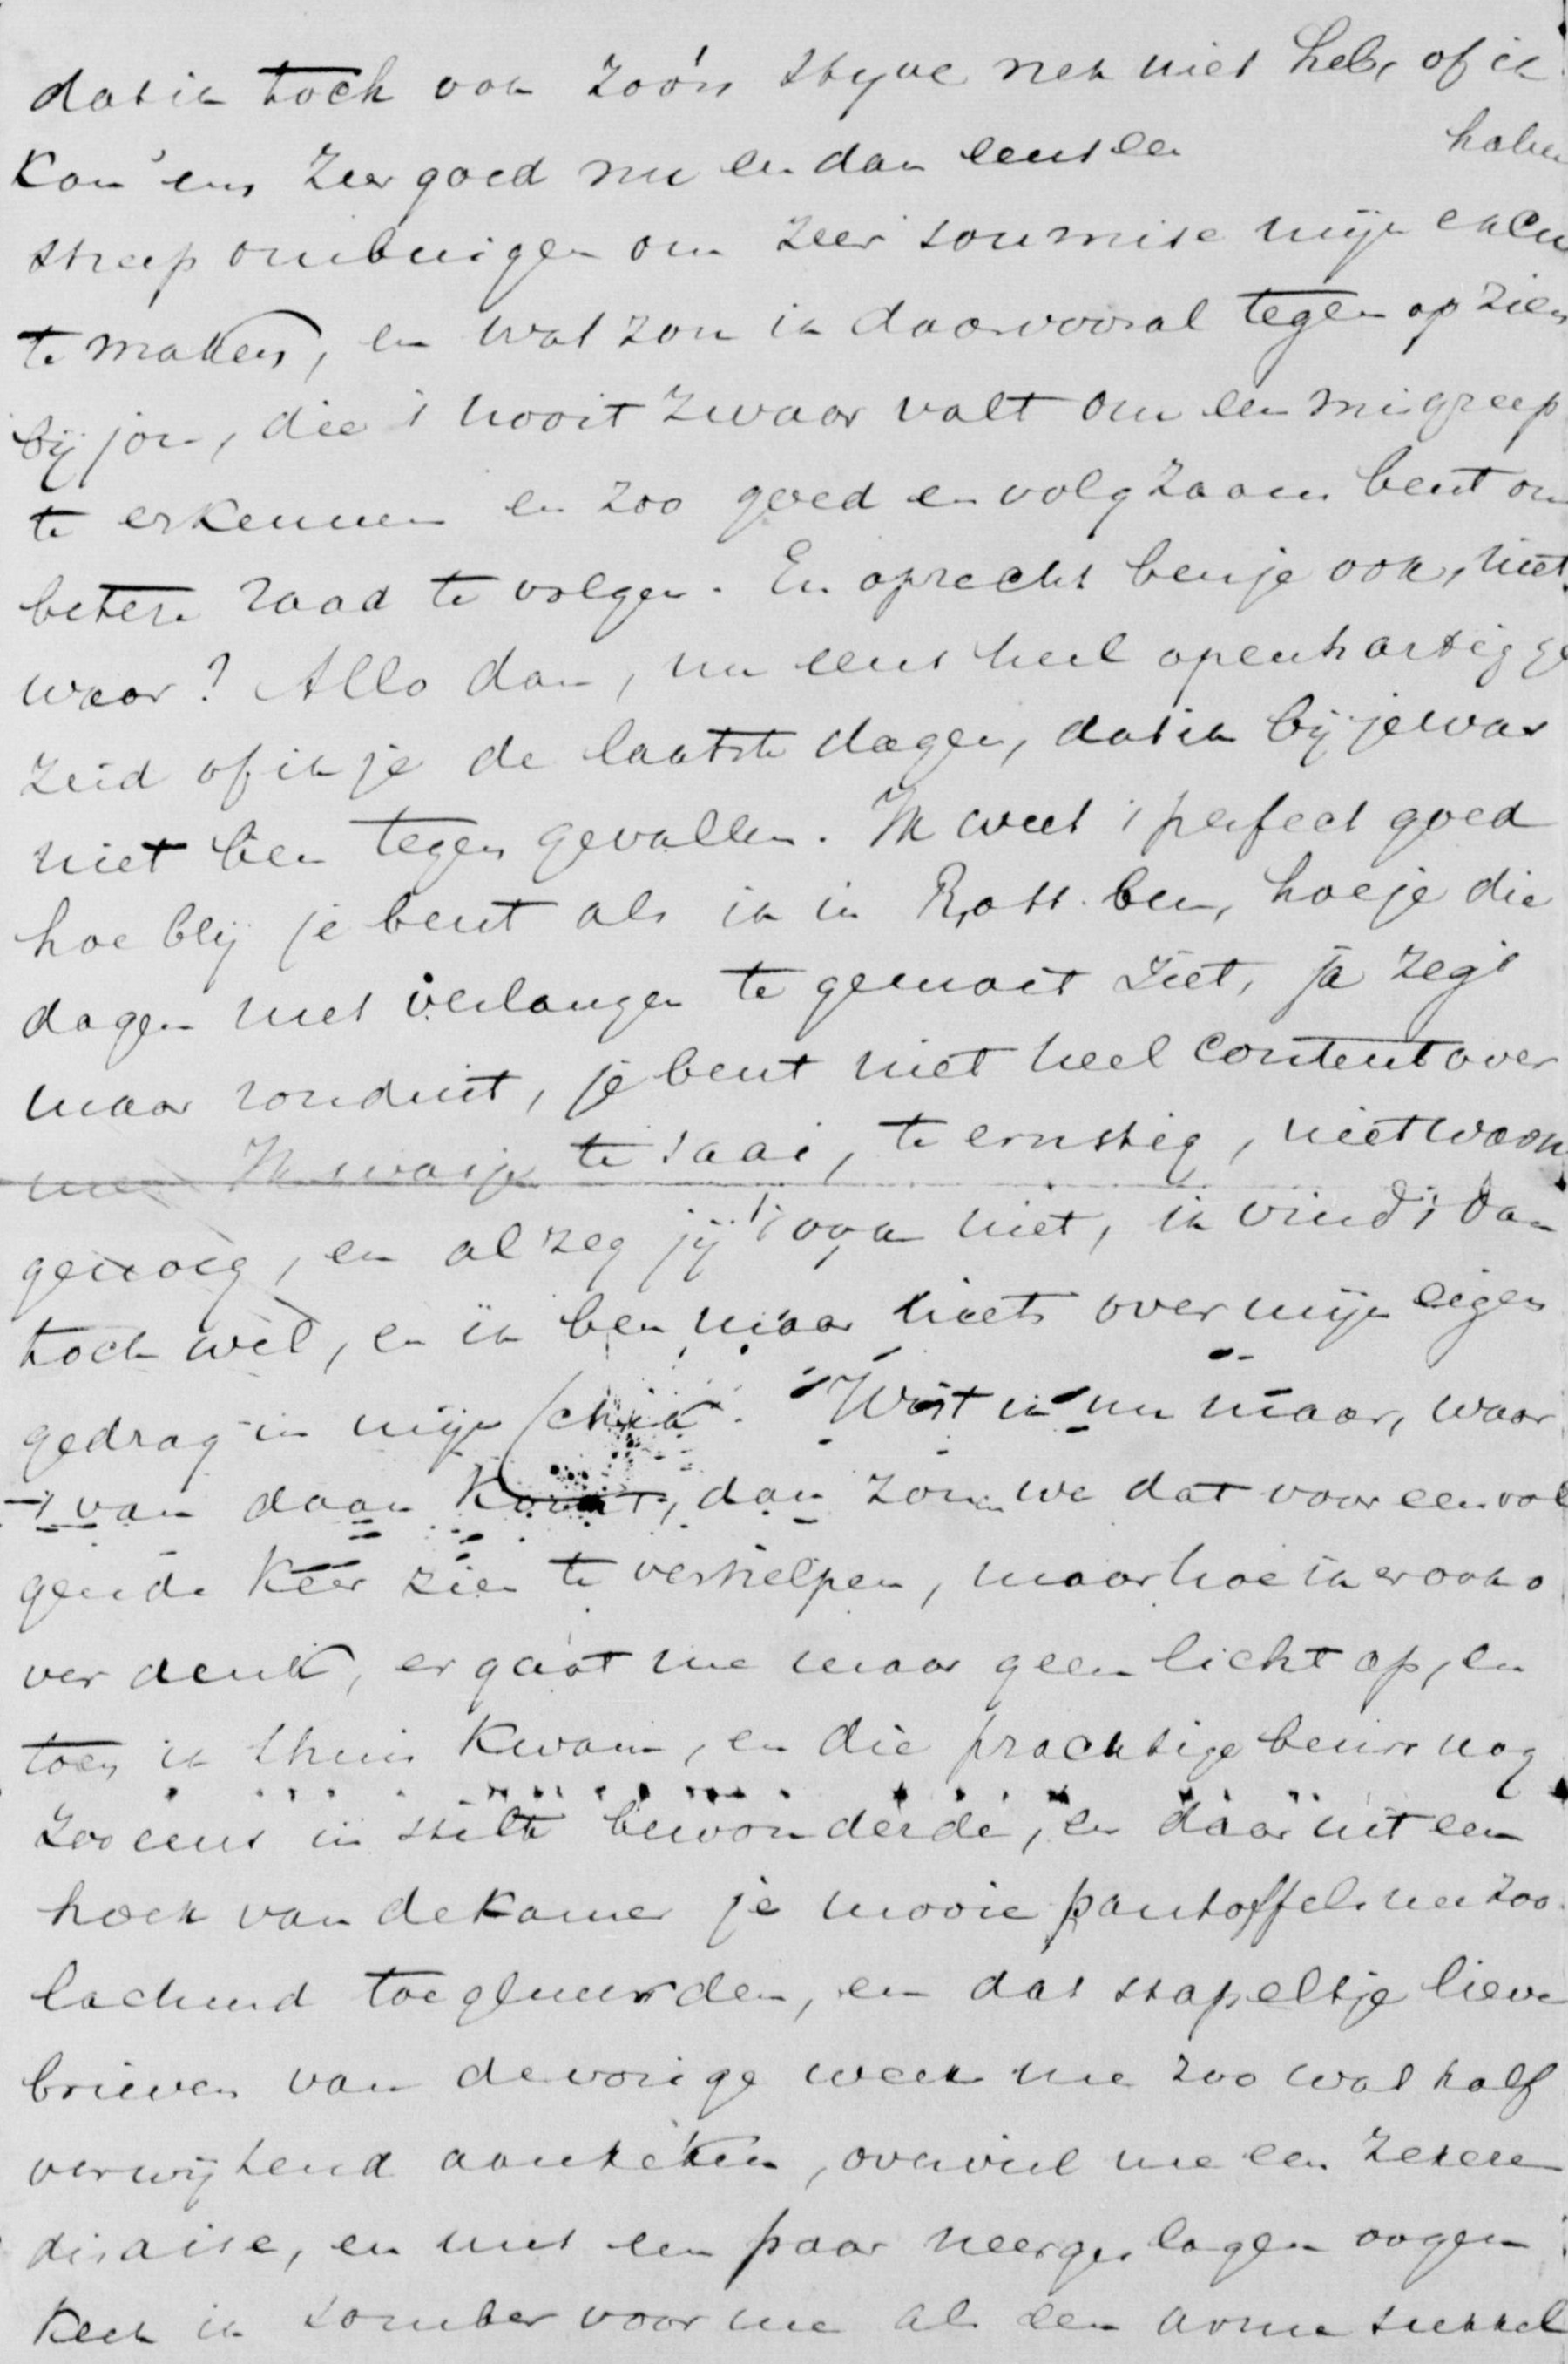 dat ik toch ook zoo'n styve nek niet heb, of ik
kan 'em zeer goed nu en dan eens een halve
streep ombuigen om zeer soumise mijn excu
te maken, en wat zou ik daar vooral tegen op zien
bij jou, die 't nooit zwaar valt om een misgreep
te erkennen en zoo goed en volgzaam bent om
beter raad te volgen. En oprecht ben je ook, niet
waar? Allo dan, nu eens heel openhartig ge
zeid of ik je de laatste dagen, dat ik bij je was
niet ben tegen gevallen. Ik weet 't perfect goed
hoe blij je bent als ik in Rott. ben, hoe je die
dagen met verlangen te gemoet ziet, ja zeg 't
maar ronduit, je bent niet heel content over
me. Ik was je te saai, te ernstig, niet woon
genoeg, en al zeg jij 't ook niet, ik vind 't dan
toch wel, en ik ben maar niets over mijn eigen
gedrag in mijn schik. Wist ik nu maar, waar
't van daan komt, dan zou we dat voor een vol
gende keer zien te verhelpen, maar hoe ik er ook o
ver denk, er gaat me maar geen licht op, en
toen ik thuis kwam, en die prachtige beurs nog
zoo eens in stilte bewonderde, en daar uit een
hoek van de kamer je mooie pantoffels me zoo
lachend toegluurden, en dat stapeltje lieve
brieven van de vorige week me zoo wat half
verwijtend aankeken, overviel me een zekere
disaise, en met een paar neergeslagen oogen
keek ik somber voor me als een arme sukkel